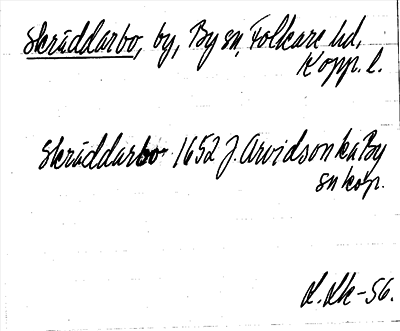 Skräddarbo, by, By sn, Folkare hd,
Kopp. l.
Skräddarbo 1652 J. Arvidson ka By
sn kop.
L. Lk-56.